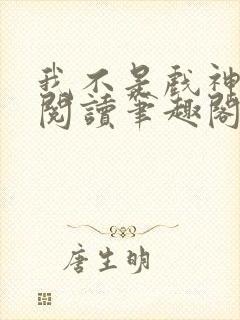 我不是戲神
閱讀筆趣閣
唐生明